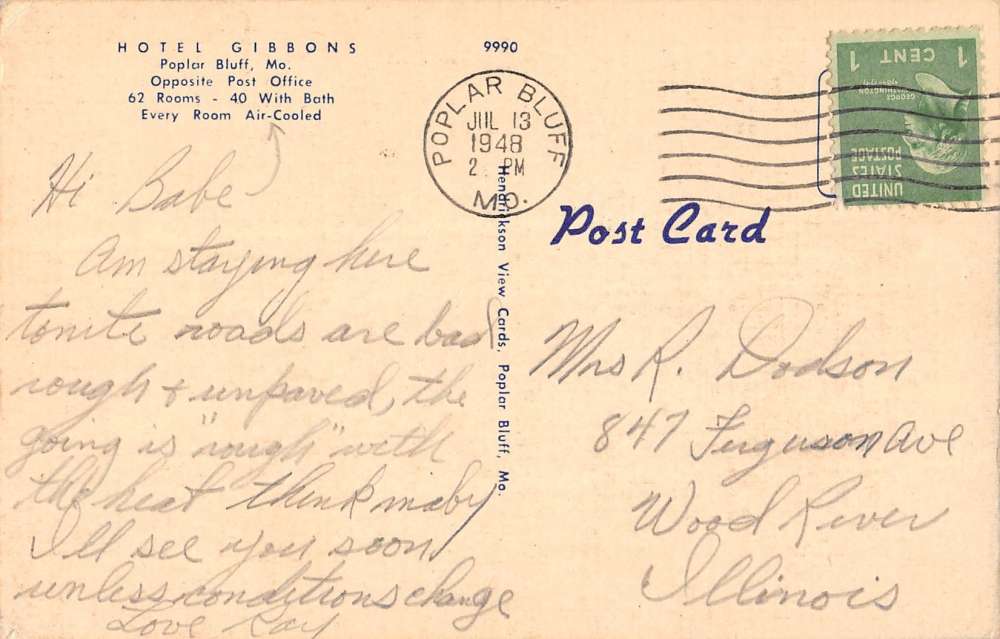 HOTEL GIBBONS
Poplar Bluff, Mo.
Opposite Post Office
62 Rooms - 40 With Bath
Every Room Air-Cooled
9990
POPLAR BLUFF
JUL 13
1948
2 PM
MO.
1 CENT 1
GEORGE WASHINGTON
UNITED
STATES
POSTAGE
Post Card
Hendrickson View Cards, Poplar Bluff, Mo.
Hi Babe
Am staying here
tonite roads are bad
rough & unpaved, the
going is "rough" with
the heat think maby
I'll see you soon
unless conditions change
Love Ray
Mrs R. Dodson
847 Ferguson Ave
Wood River
Illinois